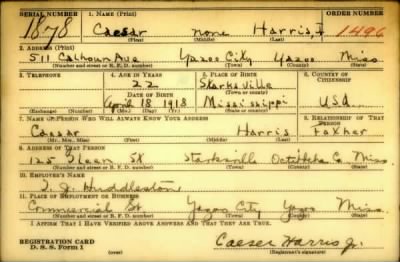 SERIAL NUMBER 1. NAME (Print) ORDER NUMBER
1878 Caesar none Harris, 1496
(First) (Middle) (Last)
2. ADDRESS (Print)
511 Calhoun Ave Yazoo City Yazoo Miss
(Number and street or R. F. D. number) (Town) (County) (State)
3. TELEPHONE 4. AGE IN YEARS 5. PLACE OF BIRTH 6. COUNTRY OF CITIZENSHIP
22 Starksville
DATE OF BIRTH (Town or county)
April 18 1918 Mississippi U.S.A.
(Exchange) (Number) (Mo.) (Day) (Yr.) (State or country)
7. NAME OF PERSON WHO WILL ALWAYS KNOW YOUR ADDRESS 8. RELATIONSHIP OF THAT PERSON
Caesar Harris Father
(Mr., Mrs., Miss) (First) (Middle) (Last)
9. ADDRESS OF THAT PERSON
125 St Starksville Co. Miss.
(Number and street or R. F. D. number) (Town) (County) (State)
10. EMPLOYER'S NAME
Huddleston
11. PLACE OF EMPLOYMENT OR BUSINESS
Commercial St. Yazoo City Yazoo Miss.
(Number and street or R. F. D. number) (Town) (County) (State)
I AFFIRM THAT I HAVE VERIFIED ABOVE ANSWERS AND THAT THEY ARE TRUE.
REGISTRATION CARD
D. S. S. Form 1
Caeser Harris Jr.
(Registrant's signature)